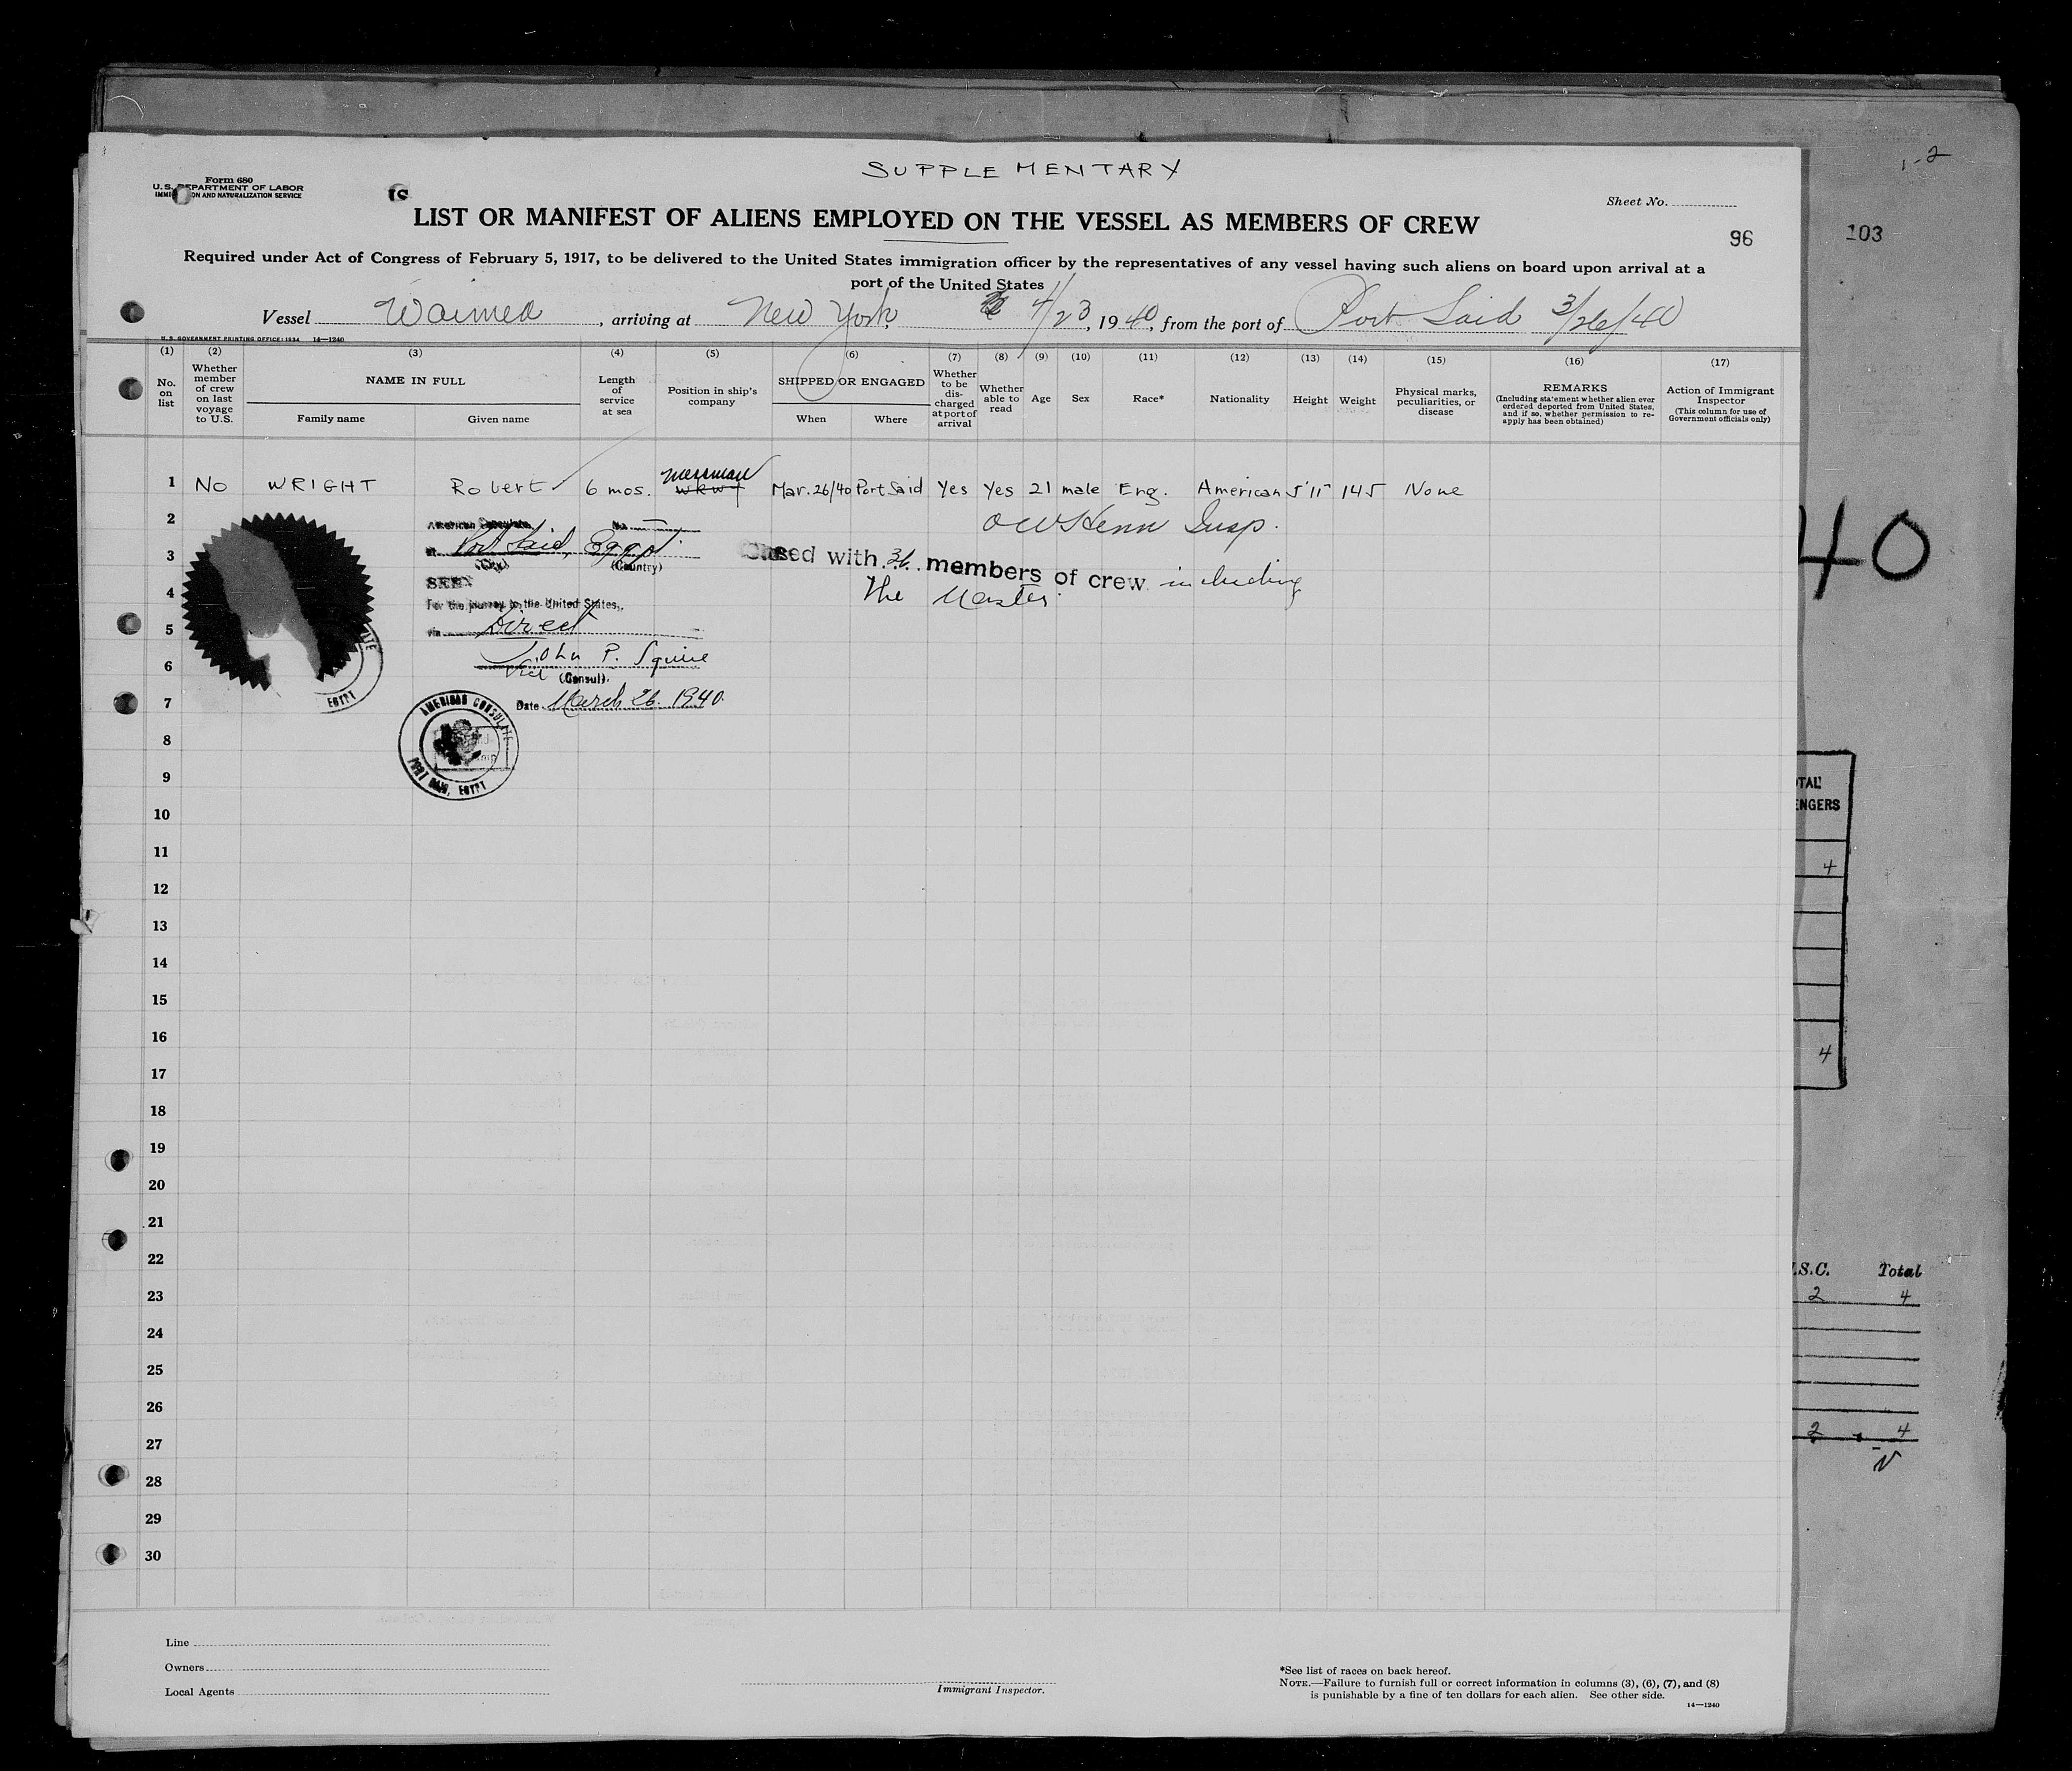 SUPPLEMENTARY
1-2
Form 680
U.S. DEPARTMENT OF LABOR
IMMI ON AND NATURALIZATION SERVICE
Sheet No.
LIST OR MANIFEST OF ALIENS EMPLOYED ON THE VESSEL AS MEMBERS OF CREW
96
103
Required under Act of Congress of February 5, 1917, to be delivered to the United States immigration officer by the representatives of any vessel having such aliens on board upon arrival at a
port of the United States
Vessel Waimea, arriving at New York 4/23, 1940, from the port of Port Said 3/26/40
U.S. GOVERNMENT PRINTING OFFICE: 1934 14—1240
(1) (2) (3) (4) (5) (6) (7) (8) (9) (10) (11) (12) (13) (14) (15) (16) (17)
No. on list
Whether member of crew on last voyage to U.S.
NAME IN FULL
Family name
Given name
Length of service at sea
Position in ship's company
SHIPPED OR ENGAGED
When
Where
Whether to be discharged at port of arrival
Whether able to read
Age
Sex
Race*
Nationality
Height
Weight
Physical marks, peculiarities, or disease
REMARKS
(Including statement whether alien ever ordered deported from United States, and if so, whether permission to re-apply has been obtained)
Action of Immigrant Inspector
(This column for use of Government officials only)
messman
1 No WRIGHT Robert 6 mos. wkwy Mar. 26/40 Port Said Yes Yes 21 male Eng. American 5'11" 145 None
2 American Consulate, No.
Insp.
3 at Port Said, Egypt
(City) (Country)
with members of crew including
the Master
40
SEEN
4 For the journey to the United States,
5 via Direct
6 John P. Squire
Vice (Consul).
EGYPT
7 Date March 26. 1940.
AMERICAN CONSULATE
PORT SAID, EGYPT
8
9
10
11
12
13
14
15
16
17
18
19
20
21
22
23
24
25
26
27
28
29
30
OTAL
ENGERS
4
4
.S.C. Total
2 4
2 4
Line
Owners
Local Agents
Immigrant Inspector.
*See list of races on back hereof.
NOTE.—Failure to furnish full or correct information in columns (3), (6), (7), and (8)
is punishable by a fine of ten dollars for each alien. See other side.
14—1240